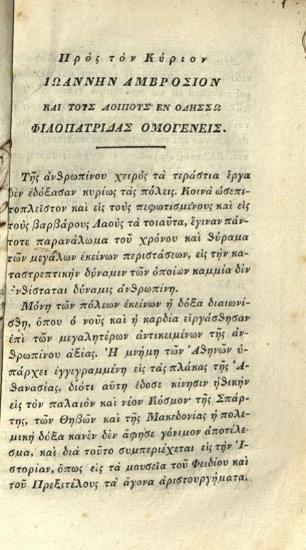 Πρὸς τὸν Κύριον
ΙΩΑΝΝΗΝ ΑΜΒΡΟΣΙΟΝ
ΚΑΙ ΤΟΥΣ ΛΟΙΠΟΥΣ ΕΝ ΟΔΗΣΣΩ
ΦΙΛΟΠΑΤΡΙΔΑΣ ΟΜΟΓΕΝΕΙΣ.
Τῆς ἀνθρωπίνου χειρὸς τὰ τεράστια ἔργα
δὲν ἐδόξασαν κυρίως τὰς πόλεις. Κοινὰ ὡσεπι-
τοπλεῖστον καὶ εἰς τοὺς πεφωτισμένους καὶ εἰς
τοὺς βαρβάρους Λαοὺς τὰ τοιαῦτα, ἔγιναν πάν-
τοτε παρανάλωμα τοῦ χρόνου καὶ θύραμα
τῶν μεγάλων ἐκείνων περιστάσεων, εἰς τὴν κα-
ταστρεπτικὴν δύναμιν τῶν ὁποίων καμμία δὲν
ἀνθίσταται δύναμις ἀνθρωπίνη.
Μόνη τῶν πόλεων ἐκείνων ἡ δόξα διαιωνί-
σθη, ὅπου ὁ νοῦς καὶ ἡ καρδία εἰργάσθησαν
ἐπὶ τῶν μεγαλητέρων ἀντικειμένων τῆς ἀν-
θρωπίνου ἀξίας. Ἡ μνήμη τῶν Ἀθηνῶν ὑ-
πάρχει ἐγγεγραμμένη εἰς τὰς πλάκας τῆς Ἀ-
θανασίας, διότι αὐτὴ ἔδοσε κίνησιν ἠθικὴν
εἰς τὸν παλαιὸν καὶ νέον Κόσμον· τῆς Σπάρ-
της, τῶν Θηβῶν καὶ τῆς Μακεδονίας ἡ πολε-
μικὴ δόξα κανὲν δὲν ἄφησε γόνιμον ἀποτέλε-
σμα, καὶ διὰ τοῦτο συμπεριέχεται εἰς τὴν Ἱ-
στορίαν, ὅπως εἰς τὰ μουσεῖα τοῦ Φειδίου καὶ
τοῦ Πρεξιτέλους τὰ ἄγονα ἀριστουργήματα.